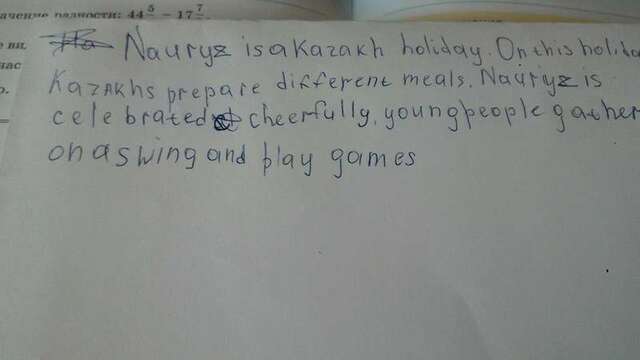 ачение разности: 44 5/ – 17 7/
Nauryz is a Kazakh holiday. On this holida
Kazakhs prepare different meals. Nauriyz is
celebrated cheerfully, young people gather
on a swing and play games